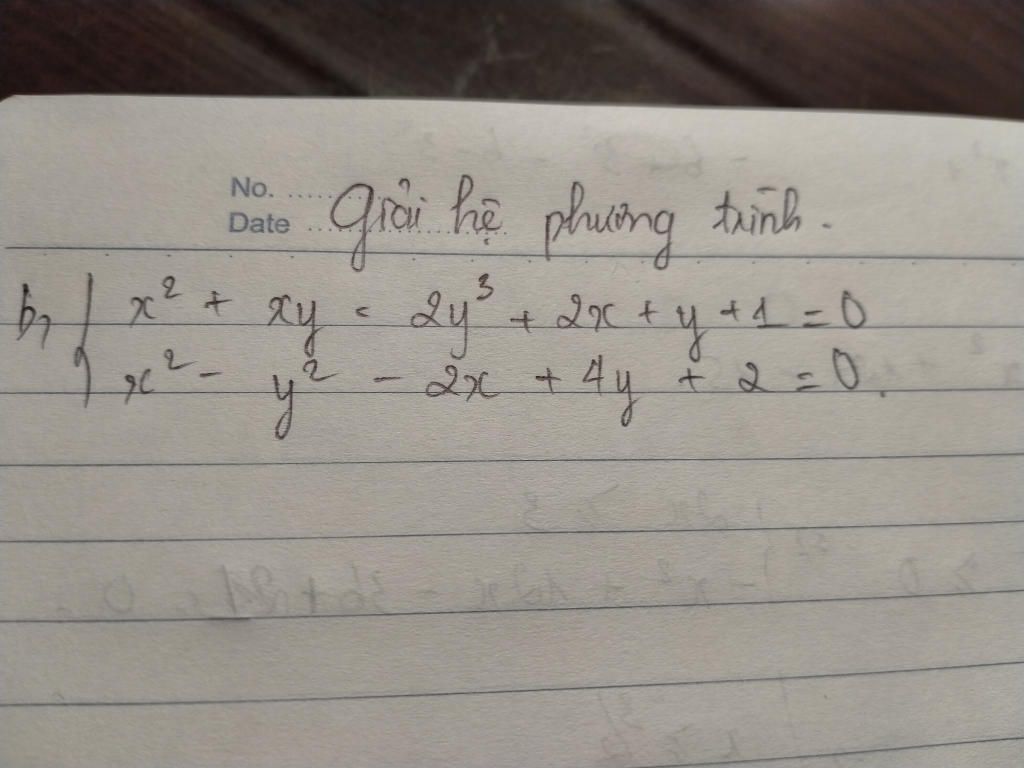 No. ......
Date ...... Giải hệ phương trình.
b, { x² + xy - 2y³ + 2x + y + 1 = 0
x² - y² - 2x + 4y + 2 = 0.